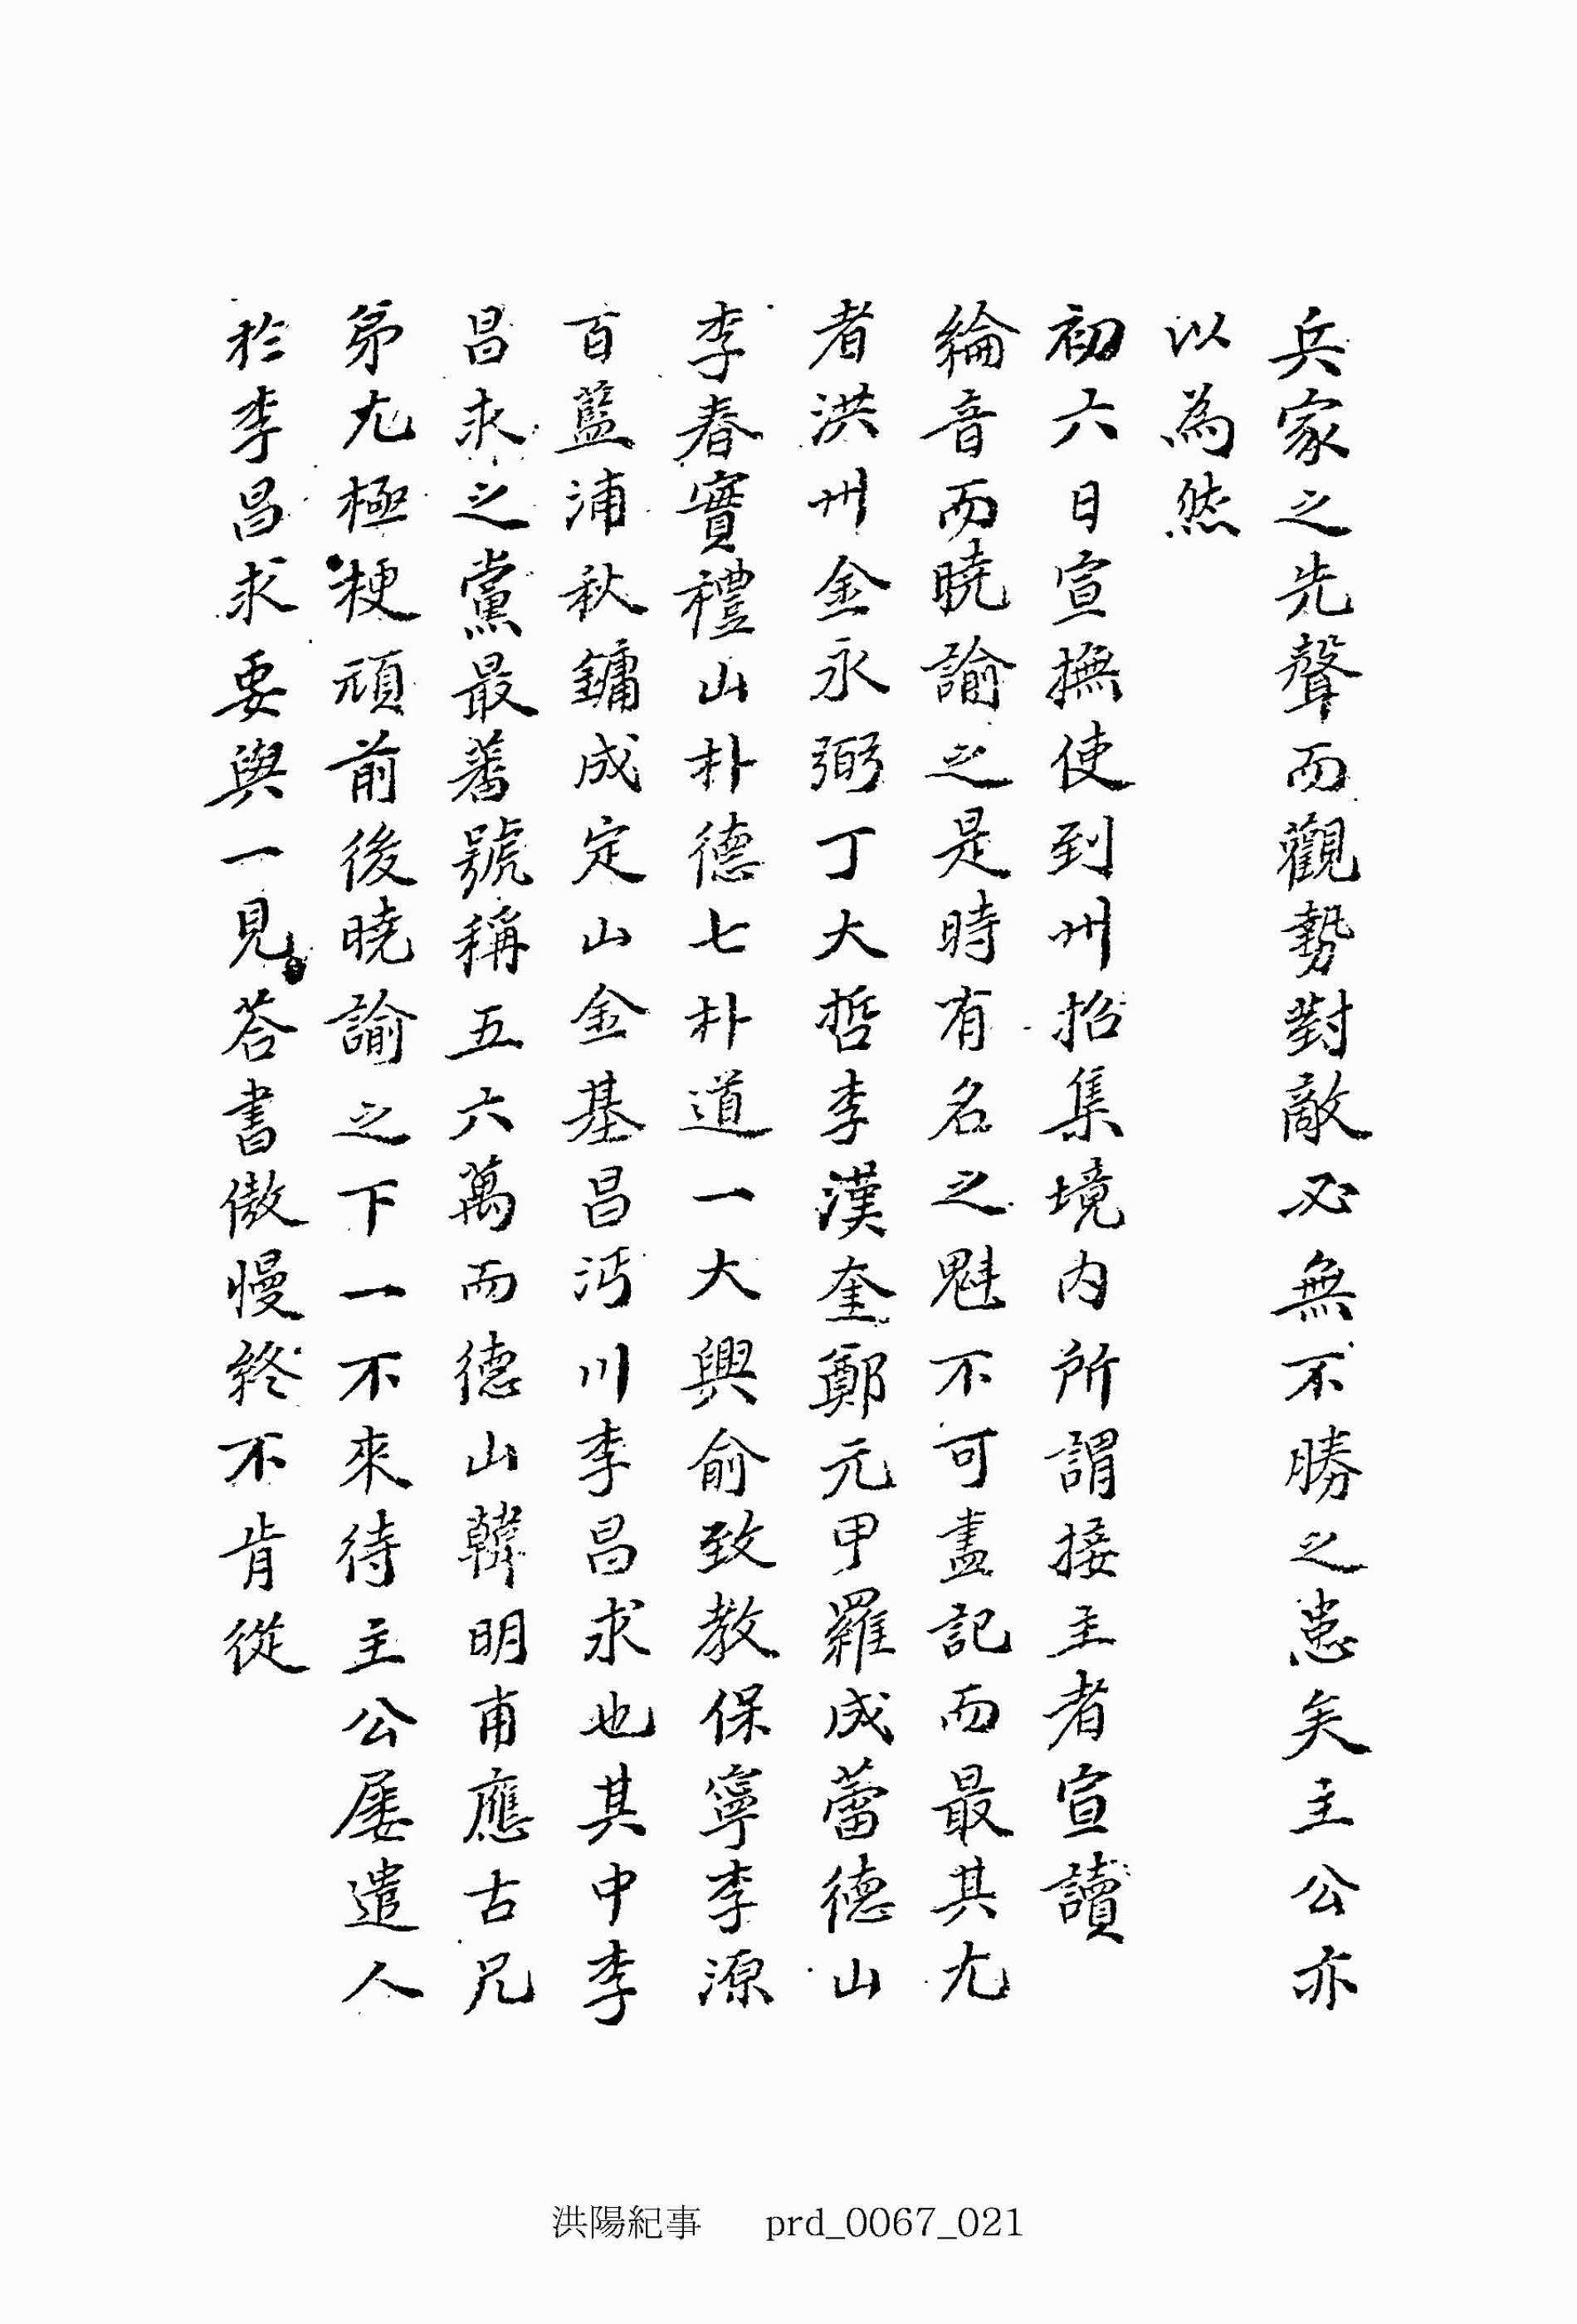 兵家之先聲而觀勢對敵必無不勝之患矣主公亦
以為然
初六日宣撫使到州招集境內所謂接主者宣讀
綸音而曉諭之是時有名之魁不可盡記而最其尤
者洪州金永弼丁大哲李漢奎鄭元甲羅成蕾德山
李春實禮山朴德七朴道一大興俞致教保寧李源
百藍浦秋鏞成定山金基昌沔川李昌求也其中李
昌求之黨最蕃號稱五六萬而德山韓明甫應古兄
弟尤極梗頑前後曉諭之下一不來待主公屢遣人
於李昌求要與一見答書傲慢終不肯從
洪陽紀事 prd_0067_021